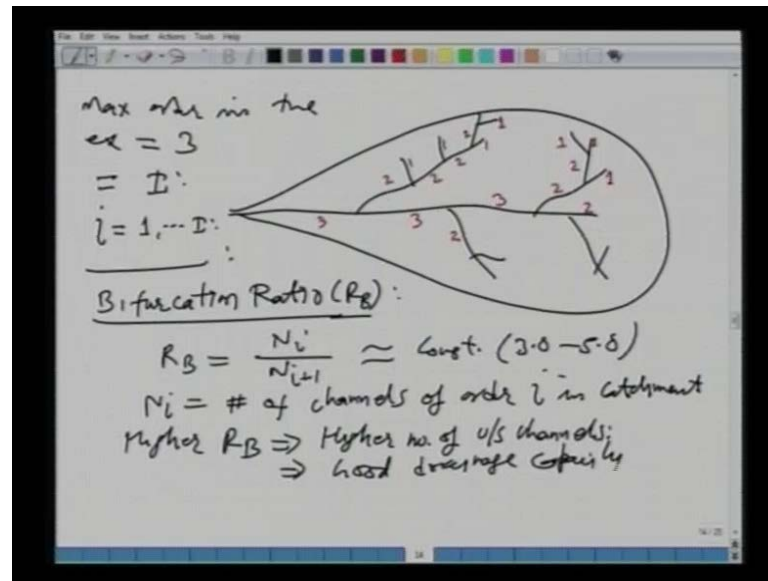 File Edit View Insert Actions Tools Help
max order in the
ex = 3
= I.
i = 1, ... I.
1
2
1
1
2
2
2
1
1
2
2
1
3
3
3
2
2
Bifurcation Ratio (RB) :
RB = Ni / Ni+1 ≈ Const. (3.0 – 5.0)
Ni = # of channels of order i in catchment
Higher RB ⇒ Higher no. of u/s channels;
⇒ Good drainage capacity